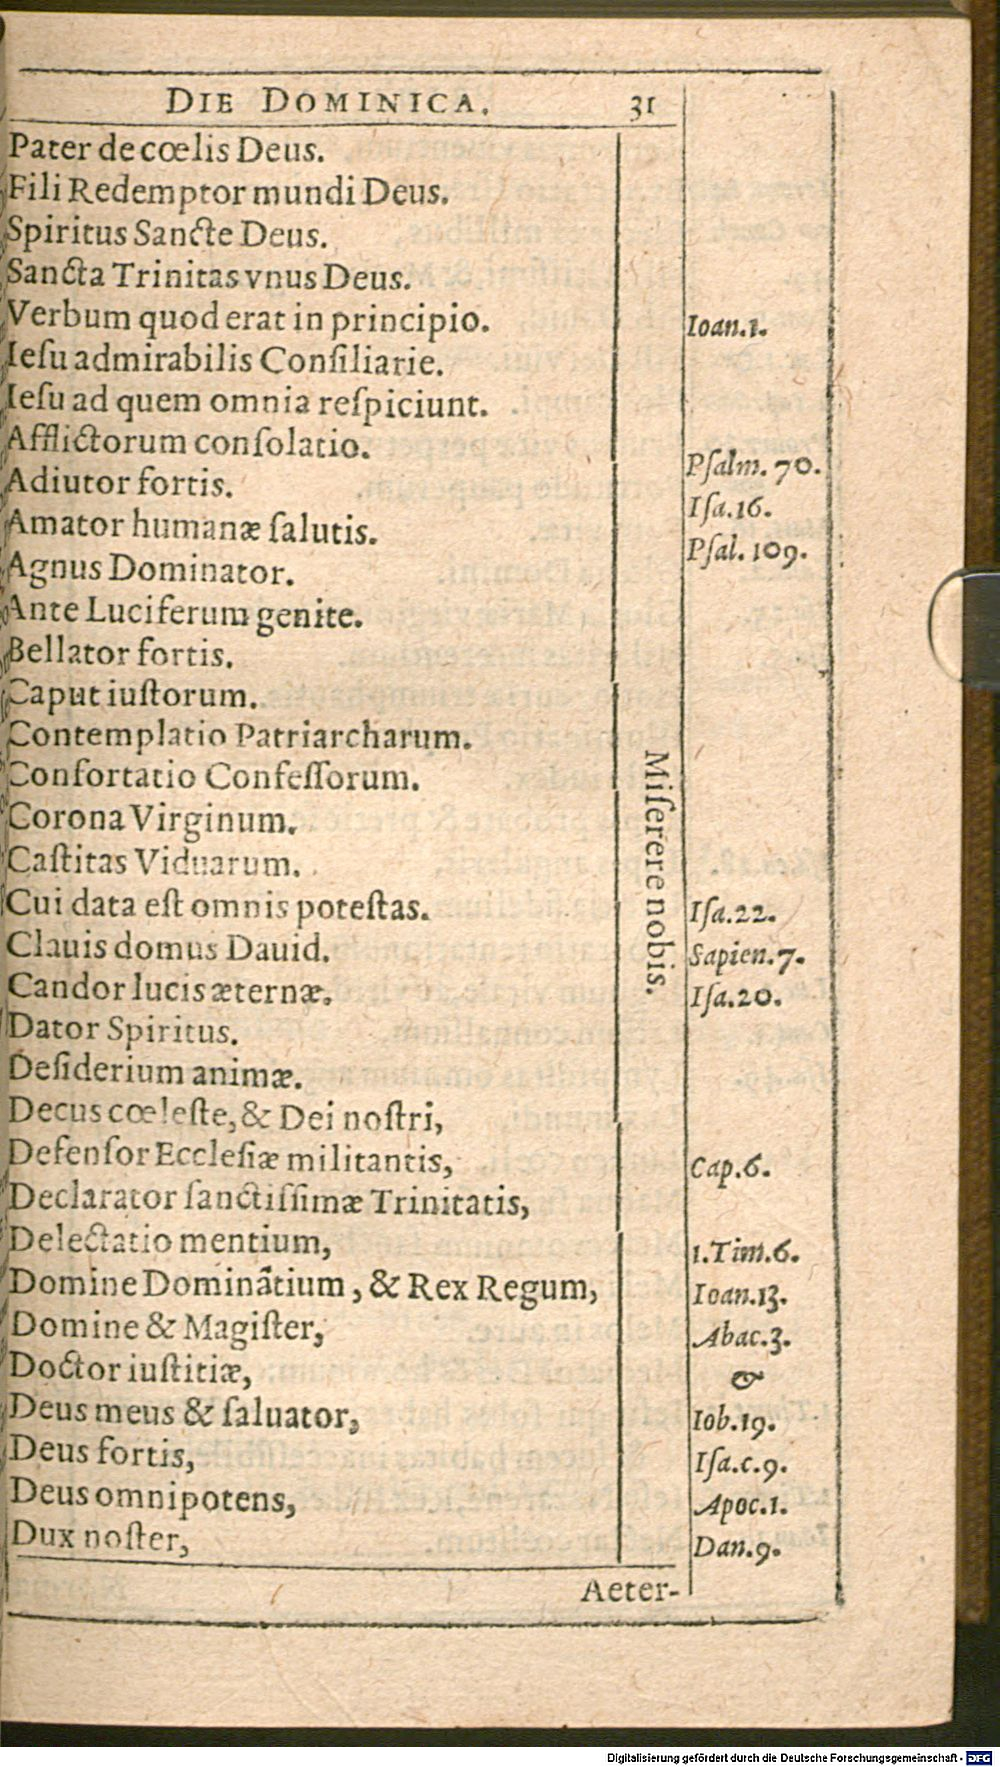 DIE DOMINICA. 31
Pater de cœlis Deus.
Fili Redemptor mundi Deus.
Spiritus Sancte Deus.
Sancta Trinitas vnus Deus.
Verbum quod erat in principio.
Ieſu admirabilis Conſiliarie.
Ieſu ad quem omnia reſpiciunt.
Afflictorum conſolatio.
Adiutor fortis.
Amator humanæ ſalutis.
Agnus Dominator.
Ante Luciferum genite.
Bellator fortis.
Caput iuſtorum.
Contemplatio Patriarcharum.
Confortatio Confeſſorum.
Corona Virginum.
Caſtitas Viduarum.
Cui data eſt omnis poteſtas.
Clauis domus Dauid.
Candor lucis æternæ.
Dator Spiritus.
Deſiderium animæ.
Decus cœleſte, & Dei noſtri,
Defenſor Eccleſiæ militantis,
Declarator ſanctiſſimæ Trinitatis,
Delectatio mentium,
Domine Dominãtium, & Rex Regum,
Domine & Magiſter,
Doctor iuſtitiæ,
Deus meus & ſaluator,
Deus fortis,
Deus omnipotens,
Dux noſter,
Miſerere nobis.
Ioan.1.
Pſalm.70.
Iſa.16.
Pſal.109.
Iſa.22.
Sapien.7.
Iſa.20.
Cap.6.
1.Tim.6.
Ioan.13.
Abac.3.
&
Iob.19.
Iſa.c.9.
Apoc.1.
Dan.9.
Aeter-
Digitalisierung gefördert durch die Deutsche Forschungsgemeinschaft - DFG